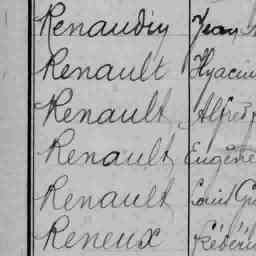 Renaudin Jean
Renault Hyacin
Renault Alfred
Renault Eugène
Renault Louis
Reneux